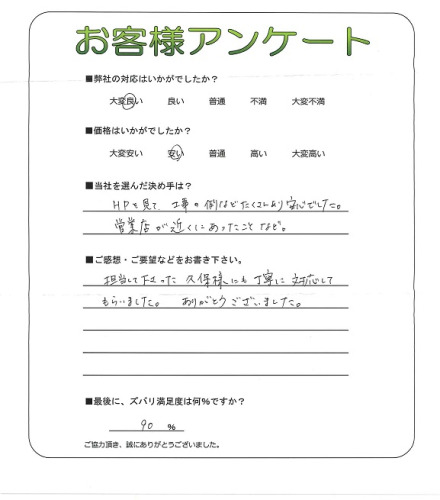 お客様アンケート
■弊社の対応はいかがでしたか?
大変良い 良い 普通 不満 大変不満
■価格はいかがでしたか?
大変安い 安い 普通 高い 大変高い
■当社を選んだ決め手は?
HPを見て 工事の例などたくさんあり安心でした。
営業店が近くにあったことなど。
■ご感想・ご要望などをお書き下さい。
担当して下さった 久保様にも丁寧に対応して
もらいました。 ありがとうございました。
■最後に、ズバリ満足度は何%ですか?
90 %
ご協力頂き、誠にありがとうございました。